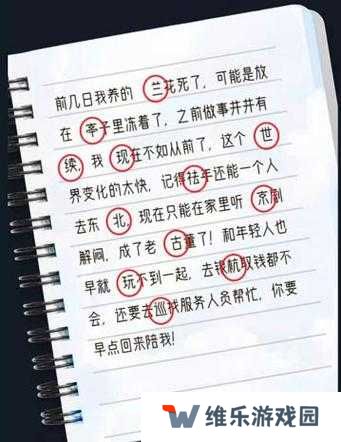 前几日我养的 兰花死了，可能是放
在 苓子里冻着了，之前做事井井有
续，我 现在不如从前了，这个 世
界变化的太快，记得祛年还能一个人
去东 北，现在只能在家里听 京剧
解闷，成了老 古董了！和年轻人也
早就 玩不到一起，去银杭取钱都不
会，还要去巡找服务人员帮忙，你要
早点回来陪我！
维乐游戏园